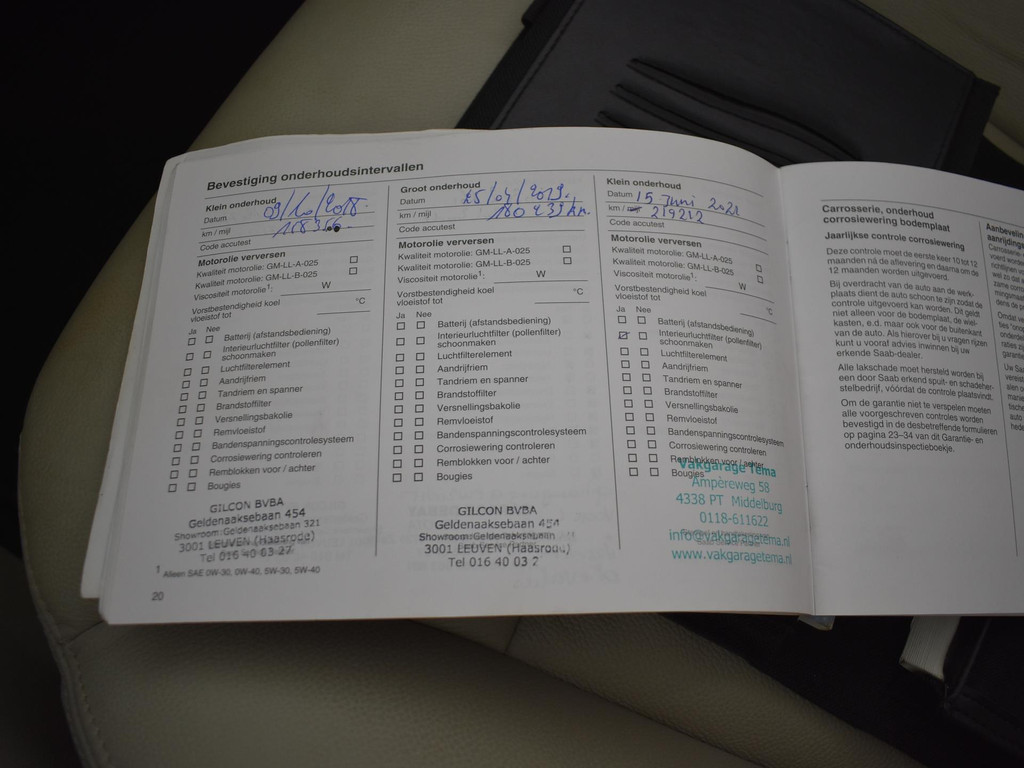 Bevestiging onderhoudsintervallen
Klein onderhoud
Datum 09/10/2018
km / mijl
Code accutest
Motorolie verversen
Kwaliteit motorolie: GM-LL-A-025
Kwaliteit motorolie: GM-LL-B-025
Viscositeit motorolie¹: W
Vorstbestendigheid koel
vloeistof tot °C
Ja Nee
Batterij (afstandsbediening)
Interieurluchtfilter (pollenfilter)
schoonmaken
Luchtfilterelement
Aandrijfriem
Tandriem en spanner
Brandstoffilter
Versnellingsbakolie
Remvloeistof
Bandenspanningscontrolesysteem
Corrosiewering controleren
Remblokken voor / achter
Bougies
GILCON BVBA
Geldenaaksebaan 454
Showroom: Geldenaaksebaan 321
3001 LEUVEN (Haasrode)
Tel 016 40 03 27
¹ Alleen SAE 0W-30, 0W-40, 5W-30, 5W-40
20
Groot onderhoud
Datum
km / mijl 180 239 km.
Code accutest
Motorolie verversen
Kwaliteit motorolie: GM-LL-A-025
Kwaliteit motorolie: GM-LL-B-025
Viscositeit motorolie¹: W
Vorstbestendigheid koel
vloeistof tot °C
Ja Nee
Batterij (afstandsbediening)
Interieurluchtfilter (pollenfilter)
schoonmaken
Luchtfilterelement
Aandrijfriem
Tandriem en spanner
Brandstoffilter
Versnellingsbakolie
Remvloeistof
Bandenspanningscontrolesysteem
Corrosiewering controleren
Remblokken voor / achter
Bougies
GILCON BVBA
Geldenaaksebaan 454
Showroom: Geldenaaksebaan
3001 LEUVEN (Haasrode)
Tel 016 40 03 2
Klein onderhoud
Datum 15 Juni 2021
km / 219212
Code accutest
Motorolie verversen
Kwaliteit motorolie: GM-LL-A-025
Kwaliteit motorolie: GM-LL-B-025
Viscositeit motorolie¹: W
Vorstbestendigheid koel
vloeistof tot °C
Ja Nee
Batterij (afstandsbediening)
Interieurluchtfilter (pollenfilter)
schoonmaken
Luchtfilterelement
Aandrijfriem
Tandriem en spanner
Brandstoffilter
Versnellingsbakolie
Remvloeistof
Bandenspanningscontrolesysteem
Corrosiewering controleren
Remblokken voor / achter
Bougies
Vakgarage Tema
Ampèreweg 58
4338 PT Middelburg
0118-611622
info@vakgaragetema.nl
www.vakgaragetema.nl
Carrosserie, onderhoud
corrosiewering bodemplaat
Jaarlijkse controle corrosiewering
Deze controle moet de eerste keer 10 tot 12
maanden ná de aflevering en daarna om de
12 maanden worden uitgevoerd.
Bij overdracht van de auto aan de werk-
plaats dient de auto schoon te zijn zodat de
controle uitgevoerd kan worden. Dit geldt
niet alleen voor de bodemplaat, de wiel-
kasten, e.d. maar ook voor de buitenkant
van de auto. Als hierover bij u vragen rijzen
kunt u vooraf advies inwinnen bij uw
erkende Saab-dealer.
Alle lakschade moet hersteld worden bij
een door Saab erkend spuit- en schadeher-
stelbedrijf, vóórdat de controle plaatsvindt.
Om de garantie niet te verspelen moeten
alle voorgeschreven controles worden
bevestigd in de desbetreffende formulieren
op pagina 23–34 van dit Garantie- en
onderhoudsinspectieboekje.